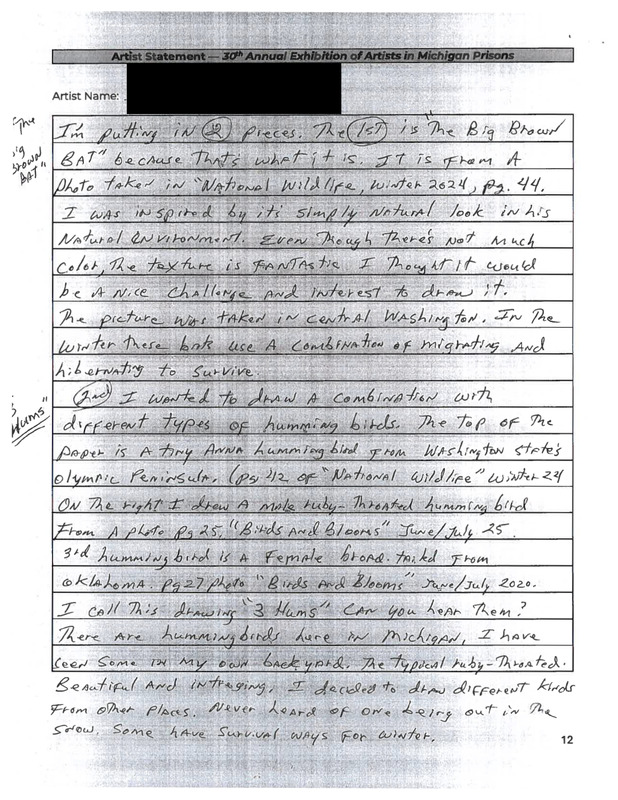 Artist Statement — 30th Annual Exhibition of Artists in Michigan Prisons
Artist Name:
"The
Big
Brown
BAT"
I'm putting in 2 pieces. The 1ST is "The Big Brown
BAT" because that's what it is. IT is From A
Photo taken in "National Wildlife, Winter 2024, pg. 44.
I was inspired by it's simply Natural look in his
Natural Environment. Even Though there's not much
color, The texture is FANTAStic I Thought it would
be A Nice Challenge and interest to draw it.
The picture was taken in central Washington. In The
winter these bats use A combination of migrating and
hibernating to survive.
Hums"
2nd I wanted to draw A combination with
different types of humming birds. The top of The
paper is A tiny Anna hummingbird From Washington state's
Olympic Peninsula. (pg 42 of "National Wildlife" Winter 24
On The right I drew A male ruby-Throated humming bird
From A photo pg 25, "Birds and Blooms" June/July 25.
3rd hummingbird is A Female broad-taild From
Oklahoma. pg 27 photo "Birds and Blooms" June/July 2020.
I call This drawing "3 Hums" Can you hear Them?
There are hummingbirds here in Michigan, I have
seen some in my own backyard. The typical ruby-Throated.
Beautiful And intreging. I decided to draw different kinds
From other places. Never heard of one being out in The
snow. Some have survival ways for winter.
12